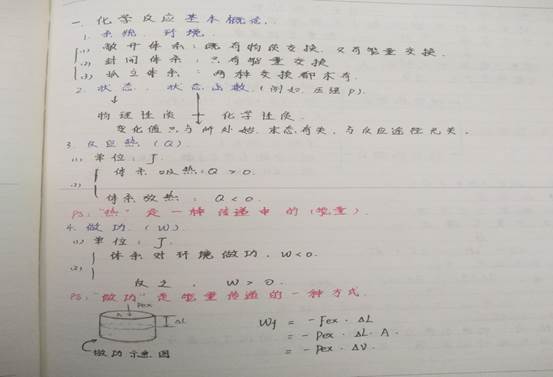 一、化学反应基本概念.
1. 系统 环境
(1) 敞开体系：既有物质交换 又有能量交换.
(2) 封闭体系：只有能量交换
(3) 孤立体系：两种交换都未有.
2. 状态 状态函数.(例如 压强 P).
物理性质 化学性质.
变化值只与所处始.末态有关，与反应途径无关.
3. 反应热 (Q)
(1) 单位：J.
(2)
体系吸热：Q > 0.
体系放热：Q < 0.
PS:"热"是一种传递中的(能量).
4. 做功 (W).
(1) 单位：J.
(2)
体系对环境做功，W<0.
反之，W>0.
PS:"做功"是能量传递的一种方式.
Pex
A
ΔL
做功示意图
Wf = -Fex · ΔL
= -Pex · ΔL · A.
= -Pex · ΔV.